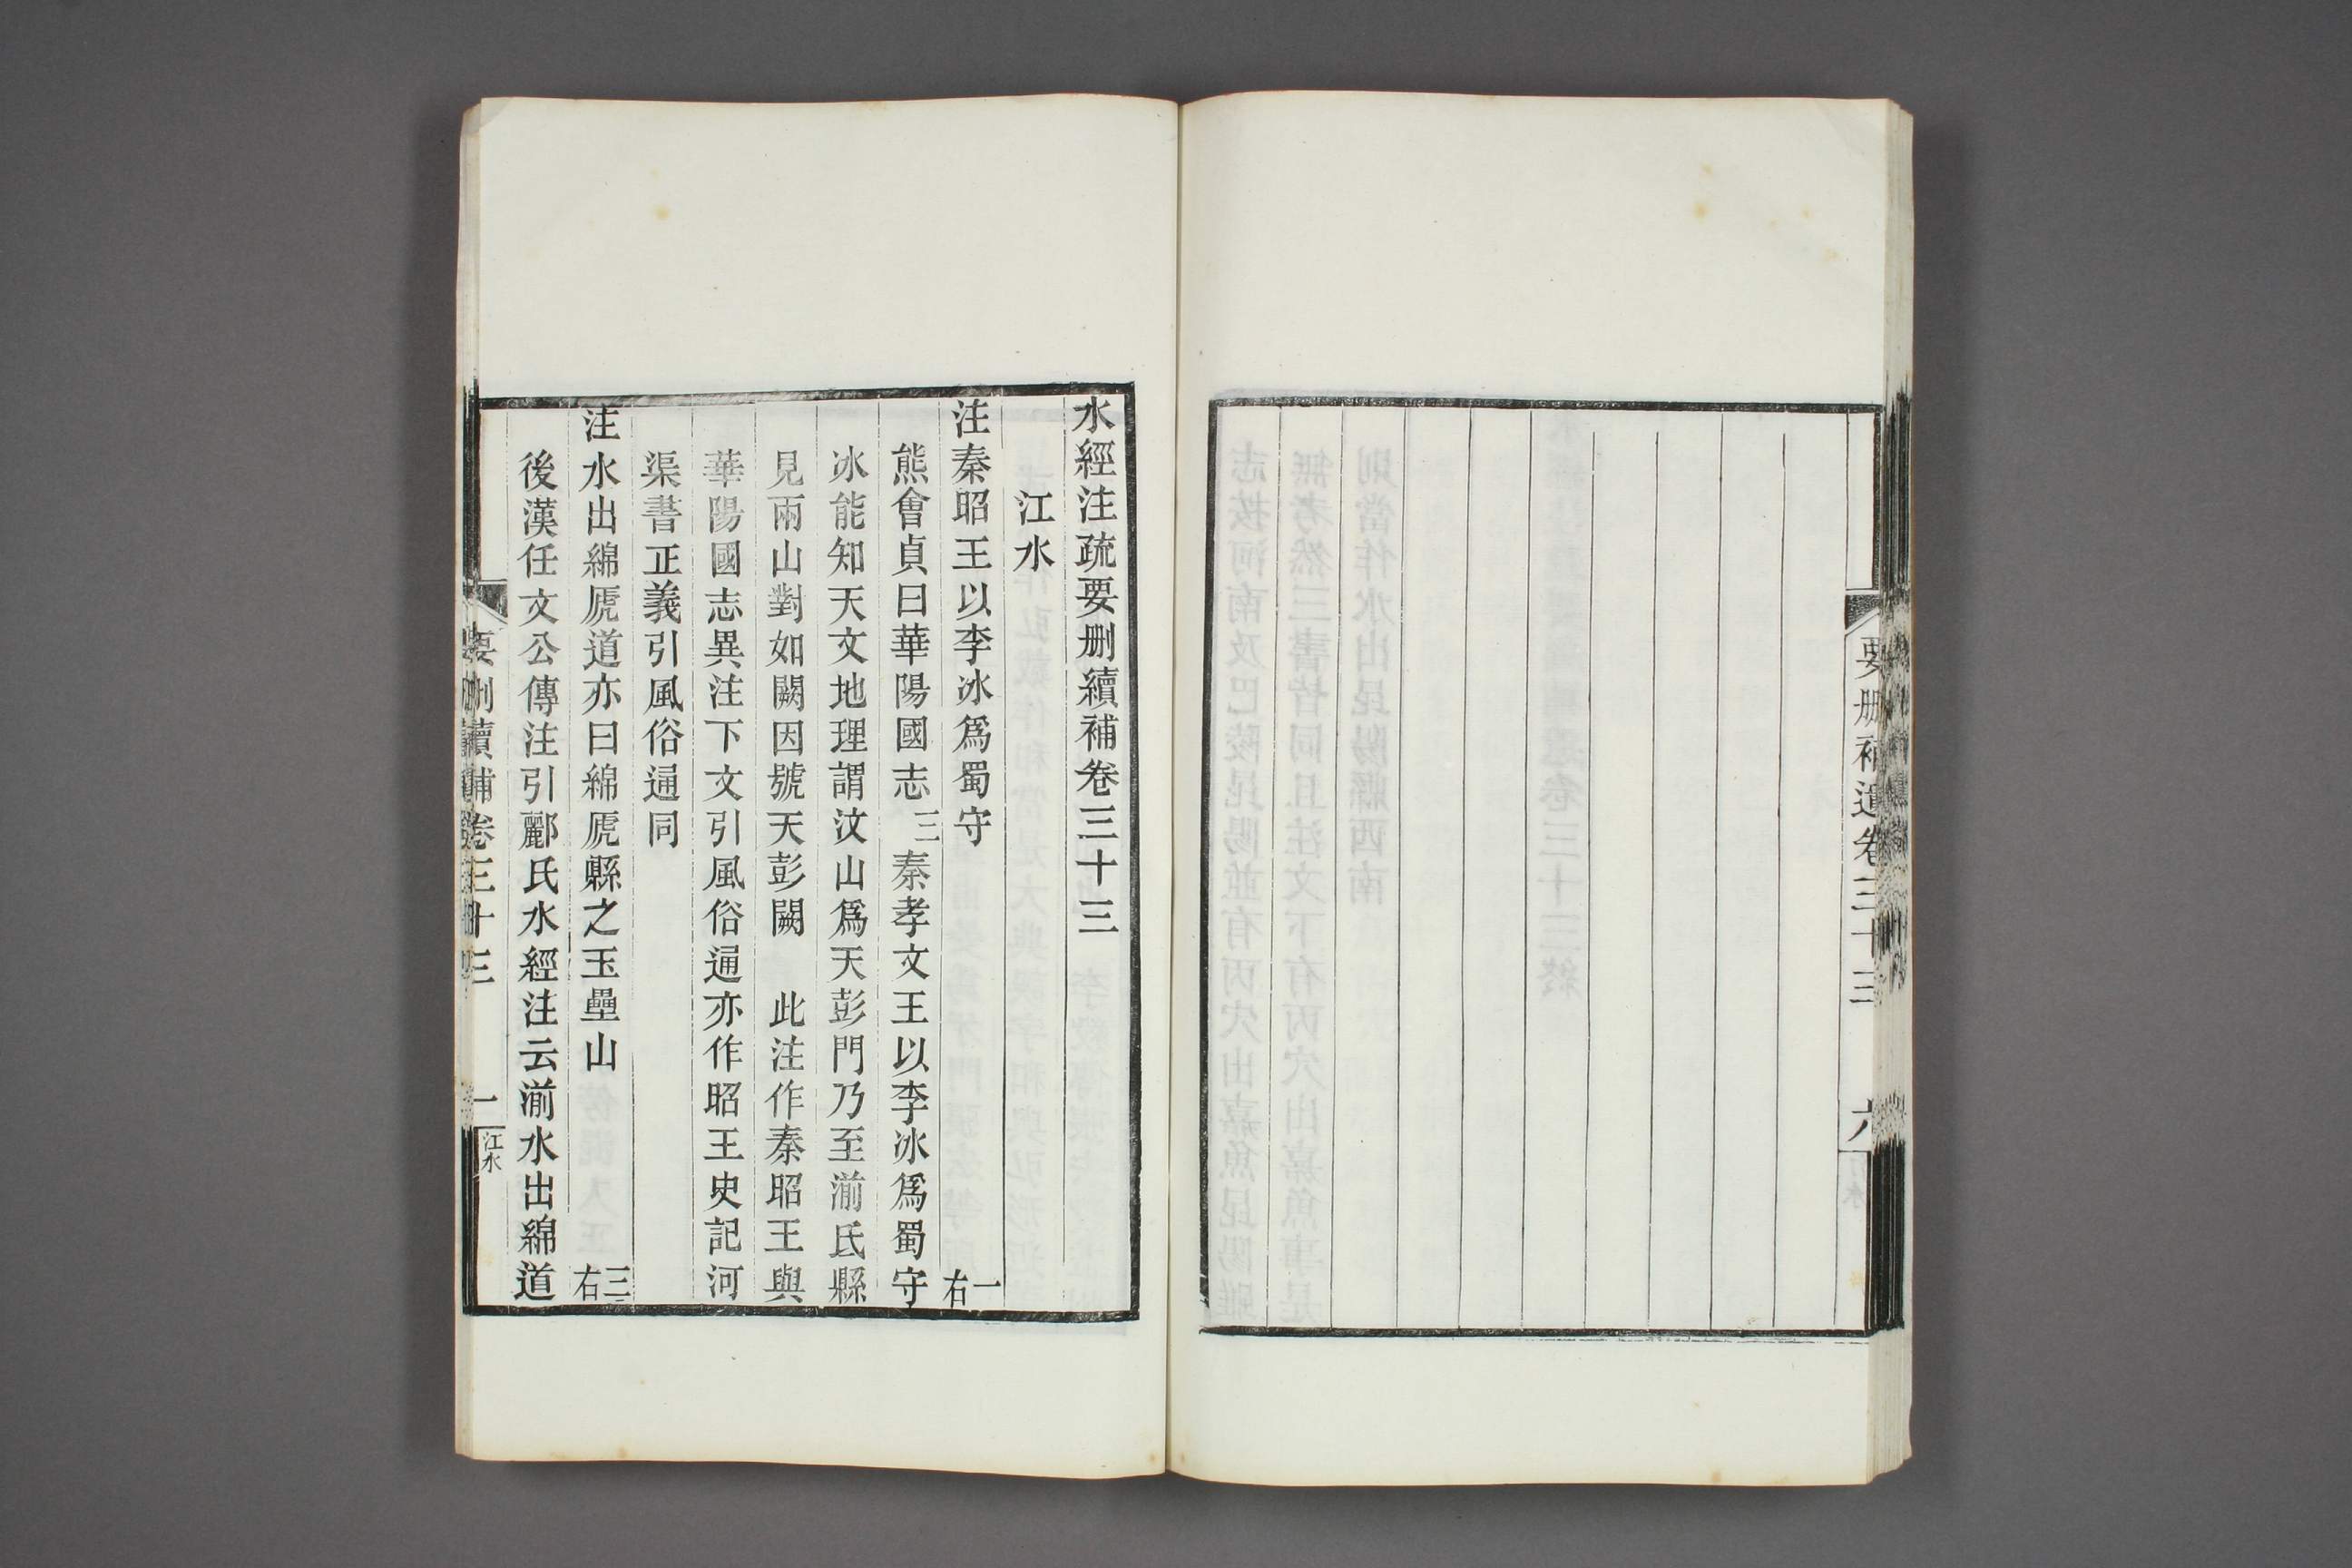 要刪補遺卷三十三
六
水經注疏要刪續補卷三十三
江水
注秦昭王以李冰爲蜀守 一右
熊會貞曰華陽國志三秦孝文王以李冰爲蜀守
冰能知天文地理謂汶山爲天彭門乃至湔氐縣
見兩山對如闕因號天彭闕 此注作秦昭王與
華陽國志異注下文引風俗通亦作昭王史記河
渠書正義引風俗通同
注水出綿虒道亦曰綿虒縣之玉壘山 三右
後漢任文公傳注引酈氏水經注云湔水出綿道
要刪續補卷三十三
一
江水